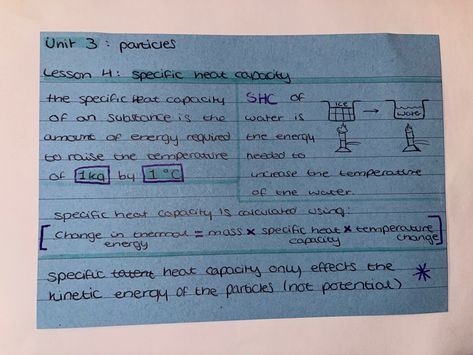 Unit 3 : particles
Lesson 4: specific heat capacity
the specific heat capacity
of an substance is the
amount of energy required
to raise the temperature
of 1kg by 1°C
SHC of
water is
the energy
needed to
increase the temperature
of the water.
ICE → water
specific heat capacity is calculated using:
[change in thermal = mass x specific heat x temperature
energy capacity change]
specific latent heat capacity only effects the
kinetic energy of the particles (not potential) *